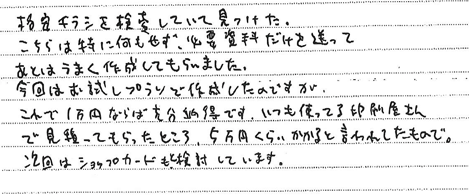 格安チラシを検索していて見つけた。
こちらは特に何もせず、必要資料だけを送って
あとはうまく作成してもらいました。
今回はお試しプランで作成したのですが、
これで1万円ならば充分納得です。いつも使ってる印刷屋さん
で見積ってもらったところ、5万円くらいかかると言われてたもので。
次回はショップカードも検討しています。